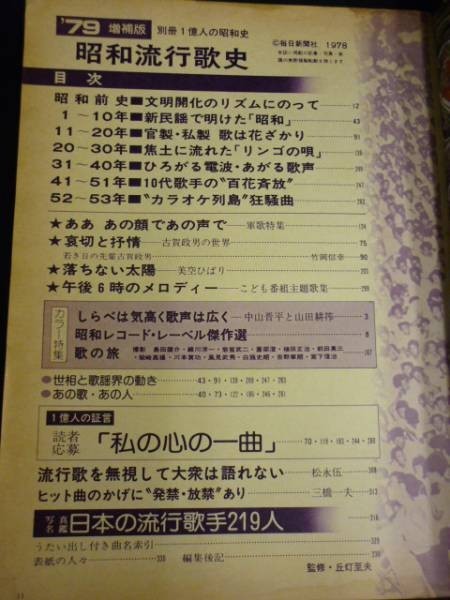 '79 増補版 別冊1億人の昭和史
©毎日新聞社 1978
昭和流行歌史
目次
昭和前史■文明開化のリズムにのって 12
1〜10年■新民謡で明けた「昭和」 43
11〜20年■官製・私製 歌は花ざかり 91
20〜30年■焦土に流れた「リンゴの唄」
31〜40年■ひろがる電波・あがる歌声
41〜51年■10代歌手の"百花斉放" 247
52〜53年■"カラオケ列島"狂騒曲
★ああ あの顔であの声で 軍歌特集
★哀切と抒情 古賀政男の世界 75
若き日の先輩古賀政男 竹岡信幸 90
★落ちない太陽 美空ひばり
★午後6時のメロディー こども番組主題歌集
カラー特集
しらべは気高く歌声は広く 中山晋平と山田耕筰 3
昭和レコード・レーベル傑作選 8
歌の旅
●世相と歌謡界の動き 43・91
●あの歌・あの人 40・73
1億人の証言
読者応募「私の心の一曲」
流行歌を無視して大衆は語れない 松永伍一
ヒット曲のかげに"発禁・放禁"あり 三橋一夫
写真名鑑 日本の流行歌手219人
うたい出し付き曲名索引
表紙の人々 編集後記
監修・丘灯至夫